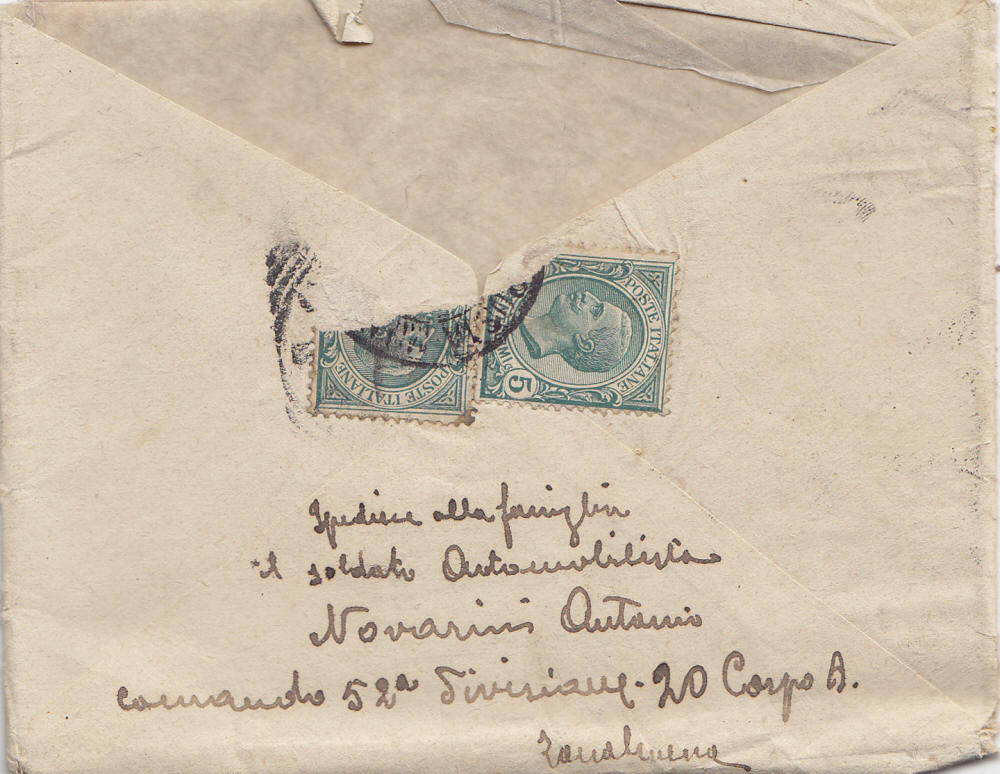 POSTE ITALIANE
5
POSTE ITALIANE
Spedisce alla famiglia
il soldato Automobilista
Novarini Antonio
comando 52a Divisione - 20 Corpo A.